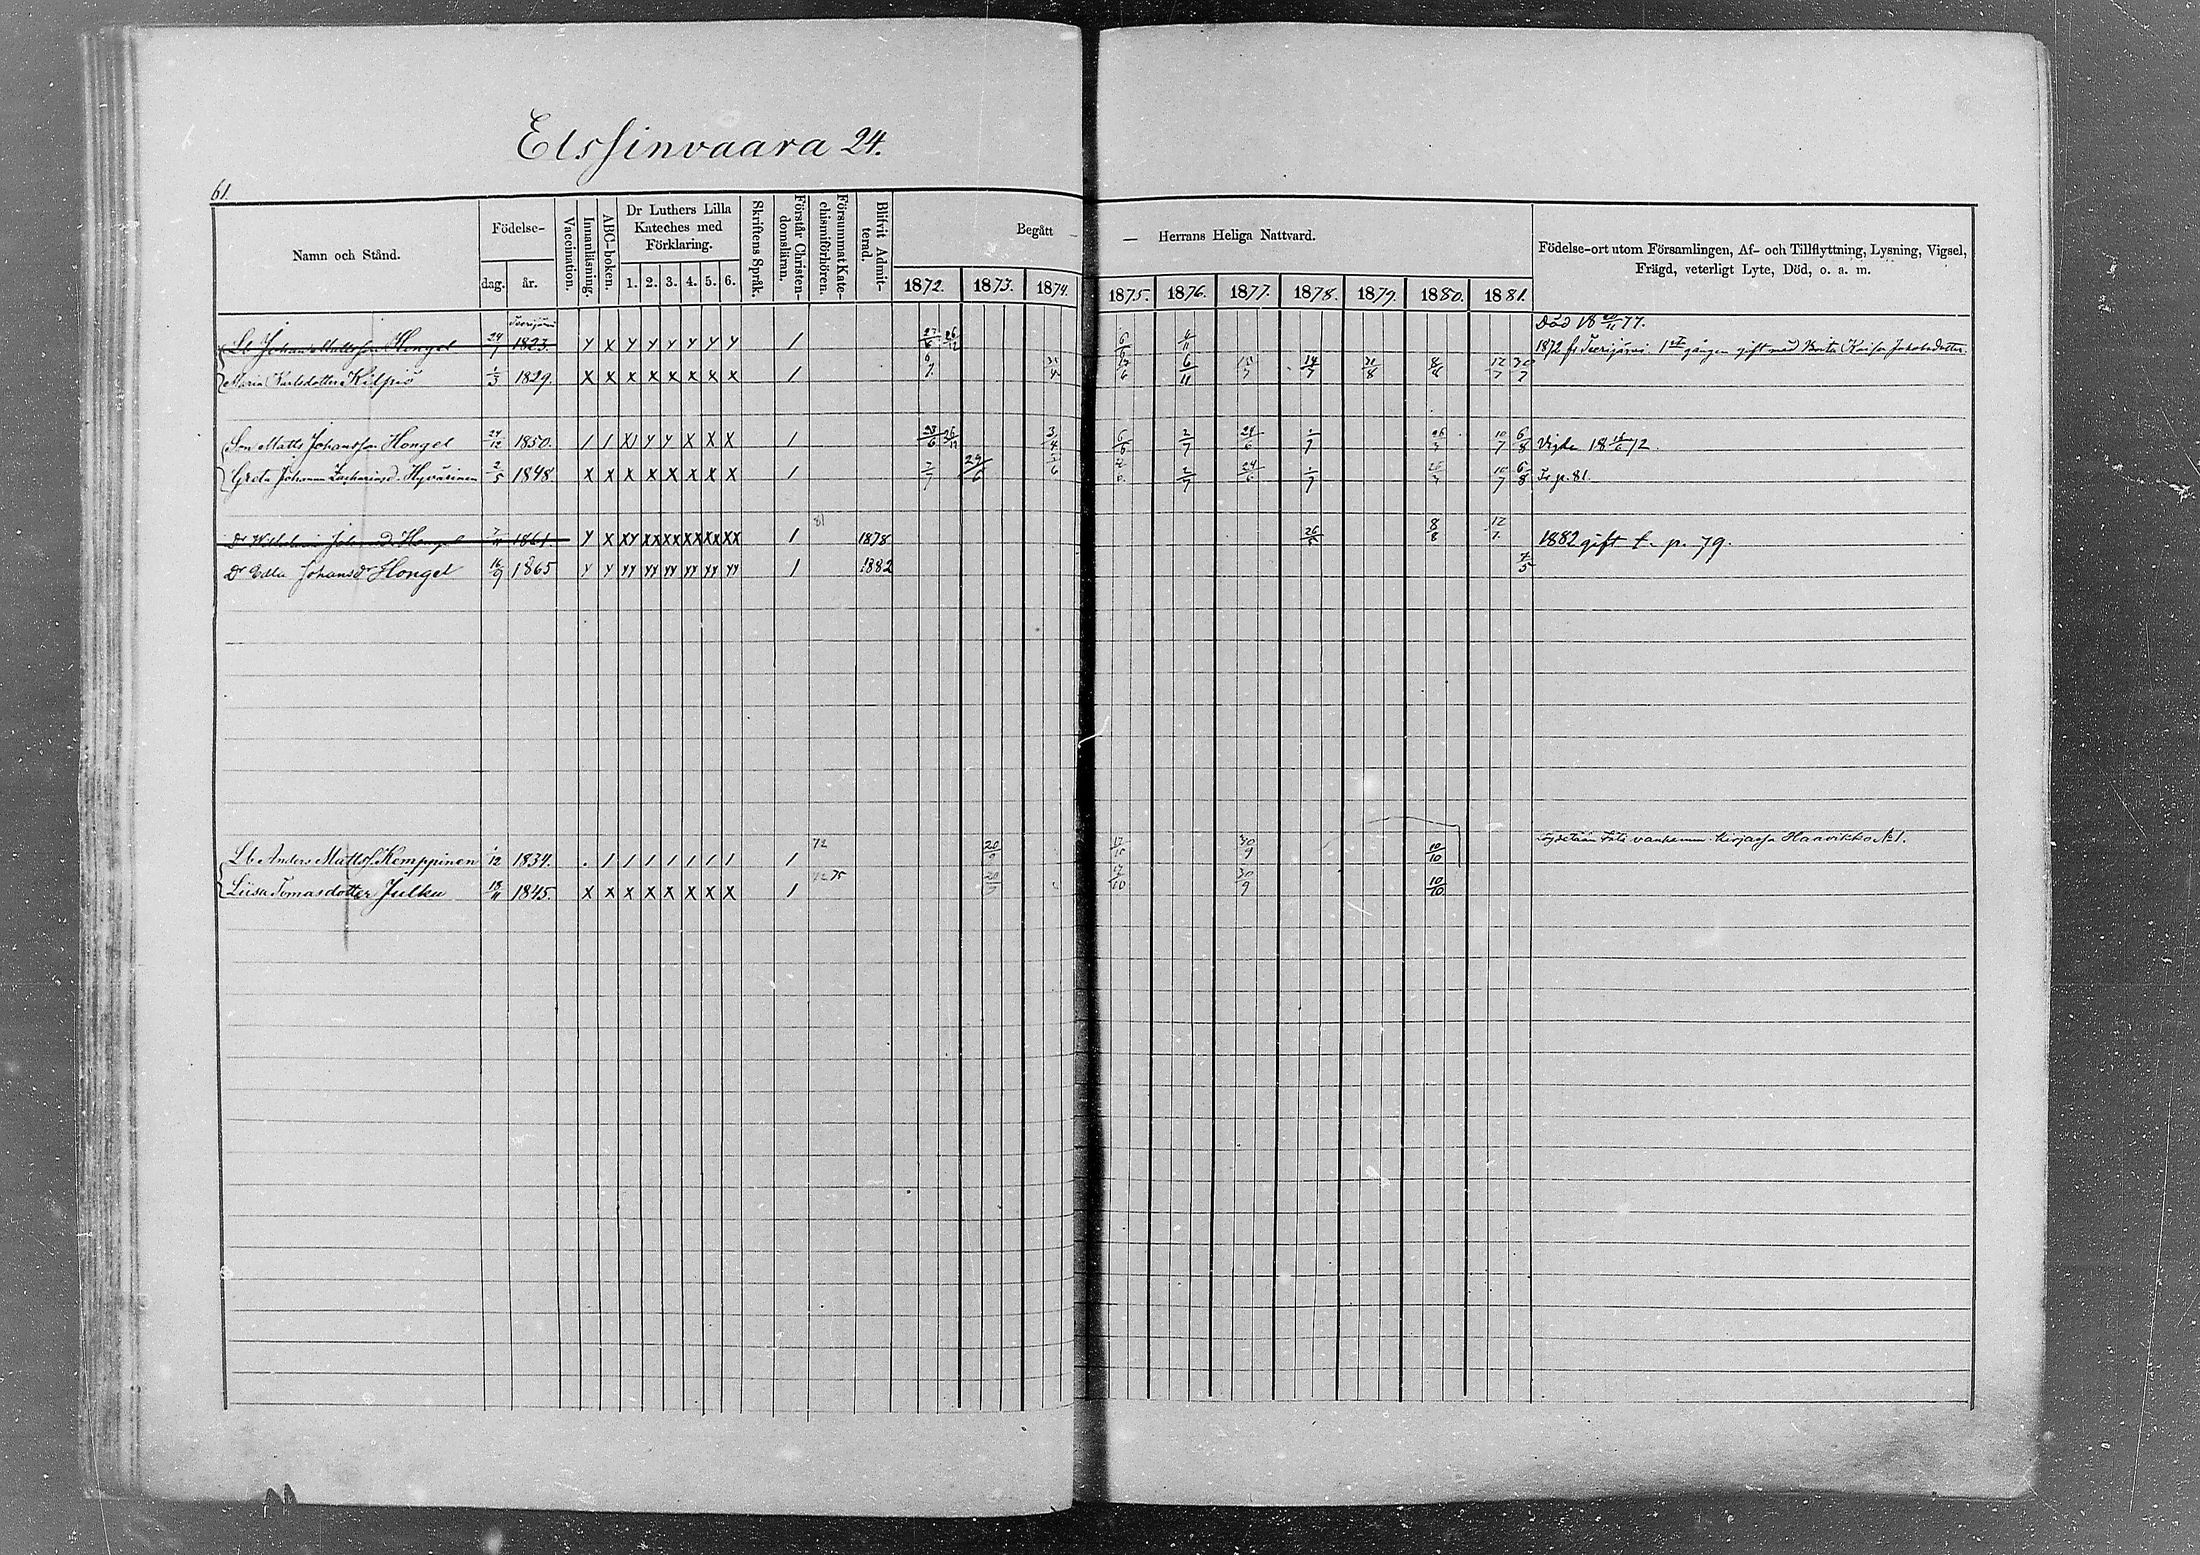 Elssinvaara 24.
61.
Namn och Stånd.
Födelse-
dag.
år.
Vaccination.
Innanläsning.
ABC-boken.
Dr Luthers Lilla Kateches med Förklaring.
1. 2. 3. 4. 5. 6.
Skriftens Språk.
Förstår Christendomsläran.
Försummat Katechismiförhören.
Blifvit Admitterad.
Begått — — Herrans Heliga Nattvard.
1872. 1873. 1874. 1875. 1876. 1877. 1878. 1879. 1880. 1881.
Födelse-ort utom Församlingen, Af- och Tillflyttning, Lysning, Vigsel,
Frägd, veterligt Lyte, Död, o. a. m.
Teerijärvi
Död 18 20/11 77.
Lb Johan Mattsson Hongel 24/7 1823. Y X Y Y Y Y Y Y 1 6/11 1872 fr Teerijärvi. 1sta gången gift med Brita Kaisa Jakobsdotter.
Maria Karlsdotter Kilpiö 1/3 1829. X X X X X X X X 1 6/11 14/7 8/8 12/7 30/7
Son Matts Johansson Hongel 24/12 1850. 1 1 X1 Y Y X X X 1 28/6 26/12 3/4 6/6 2/7 24/6 1/7 26/3 10/7 6/8 Vigde 18 16/6 72.
Greta Johanna Zachariasd. Hyvärinen 2/5 1848 X X X X X X X X 1 2/7 29/6 2/7 24/6 1/7 10/7 6/8 Tr p. 81.
81
Dr Wilhelmina Johansd. Hongel 1861. Y X XY XX XX XX XX XX 1 1878 26/5 8/8 12/7 1882 gift t. p. 79.
Dr Edla Johansdr Hongel 16/9 1865 Y Y YY YY YY YY YY YY 1 1882
Lb Anders Mattss. Kemppinen 1/12 1834. 1 1 1 1 1 1 1 1 72 20/9 30/9 10/10 vanhemm. kirjassa Haavikko № 1.
Liisa Tomasdotter Julku 18/11 1845. X X X X X X X X 1 72 75 20/9 12/10 30/9 10/10